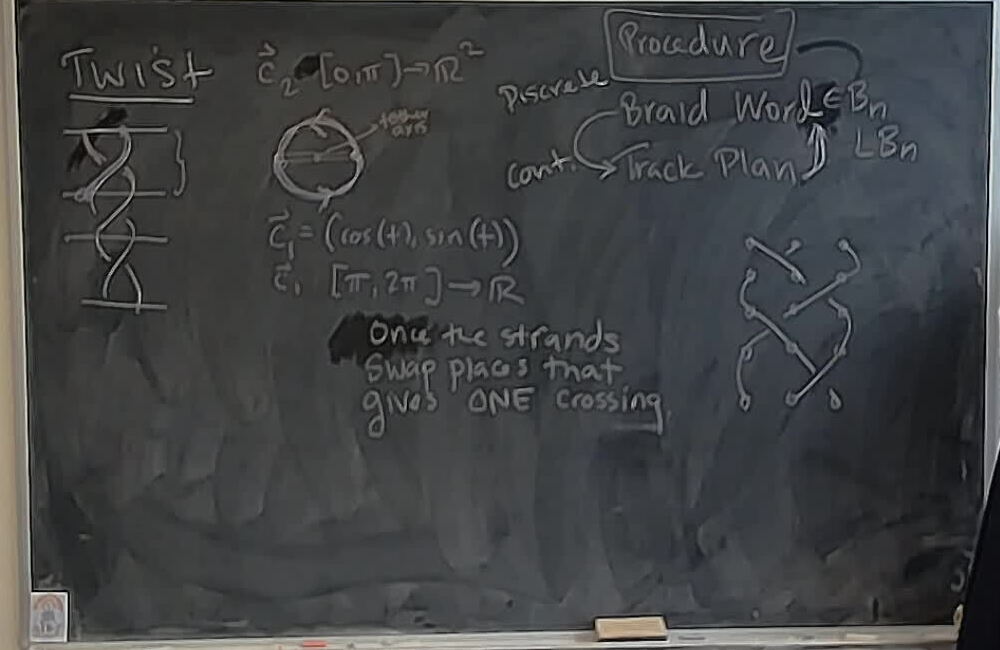 Twist
C⃗₂ [0,π]→ℝ²
tether
axis
C⃗₁ = (cos(t), sin(t))
C⃗₁ [π, 2π] → ℝ
Once the strands
swap places that
gives ONE crossing
Procedure
Discrete
Braid Word ∈ Bn
LBn
cont.
Track Plan